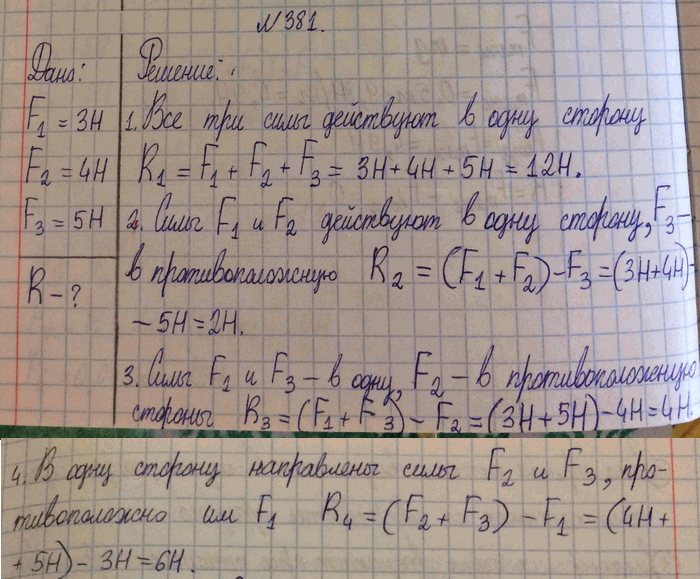 № 381.
Дано: Решение:
F₁ = 3Н 1. Все три силы действуют в одну сторону
F₂ = 4Н R₁ = F₁ + F₂ + F₃ = 3Н + 4Н + 5Н = 12Н.
F₃ = 5Н 2. Силы F₁ и F₂ действуют в одну сторону, F₃ –
R – ? в противоположную R₂ = (F₁ + F₂) – F₃ = (3Н+4Н) –
– 5Н = 2Н.
3. Силы F₁ и F₃ – в одну, F₂ – в противоположную
стороны R₃ = (F₁ + F₃) – F₂ = (3Н + 5Н) – 4Н = 4Н.
4. В одну сторону направлены силы F₂ и F₃, про-
тивоположно им F₁ R₄ = (F₂ + F₃) – F₁ = (4Н +
+ 5Н) – 3Н = 6Н.